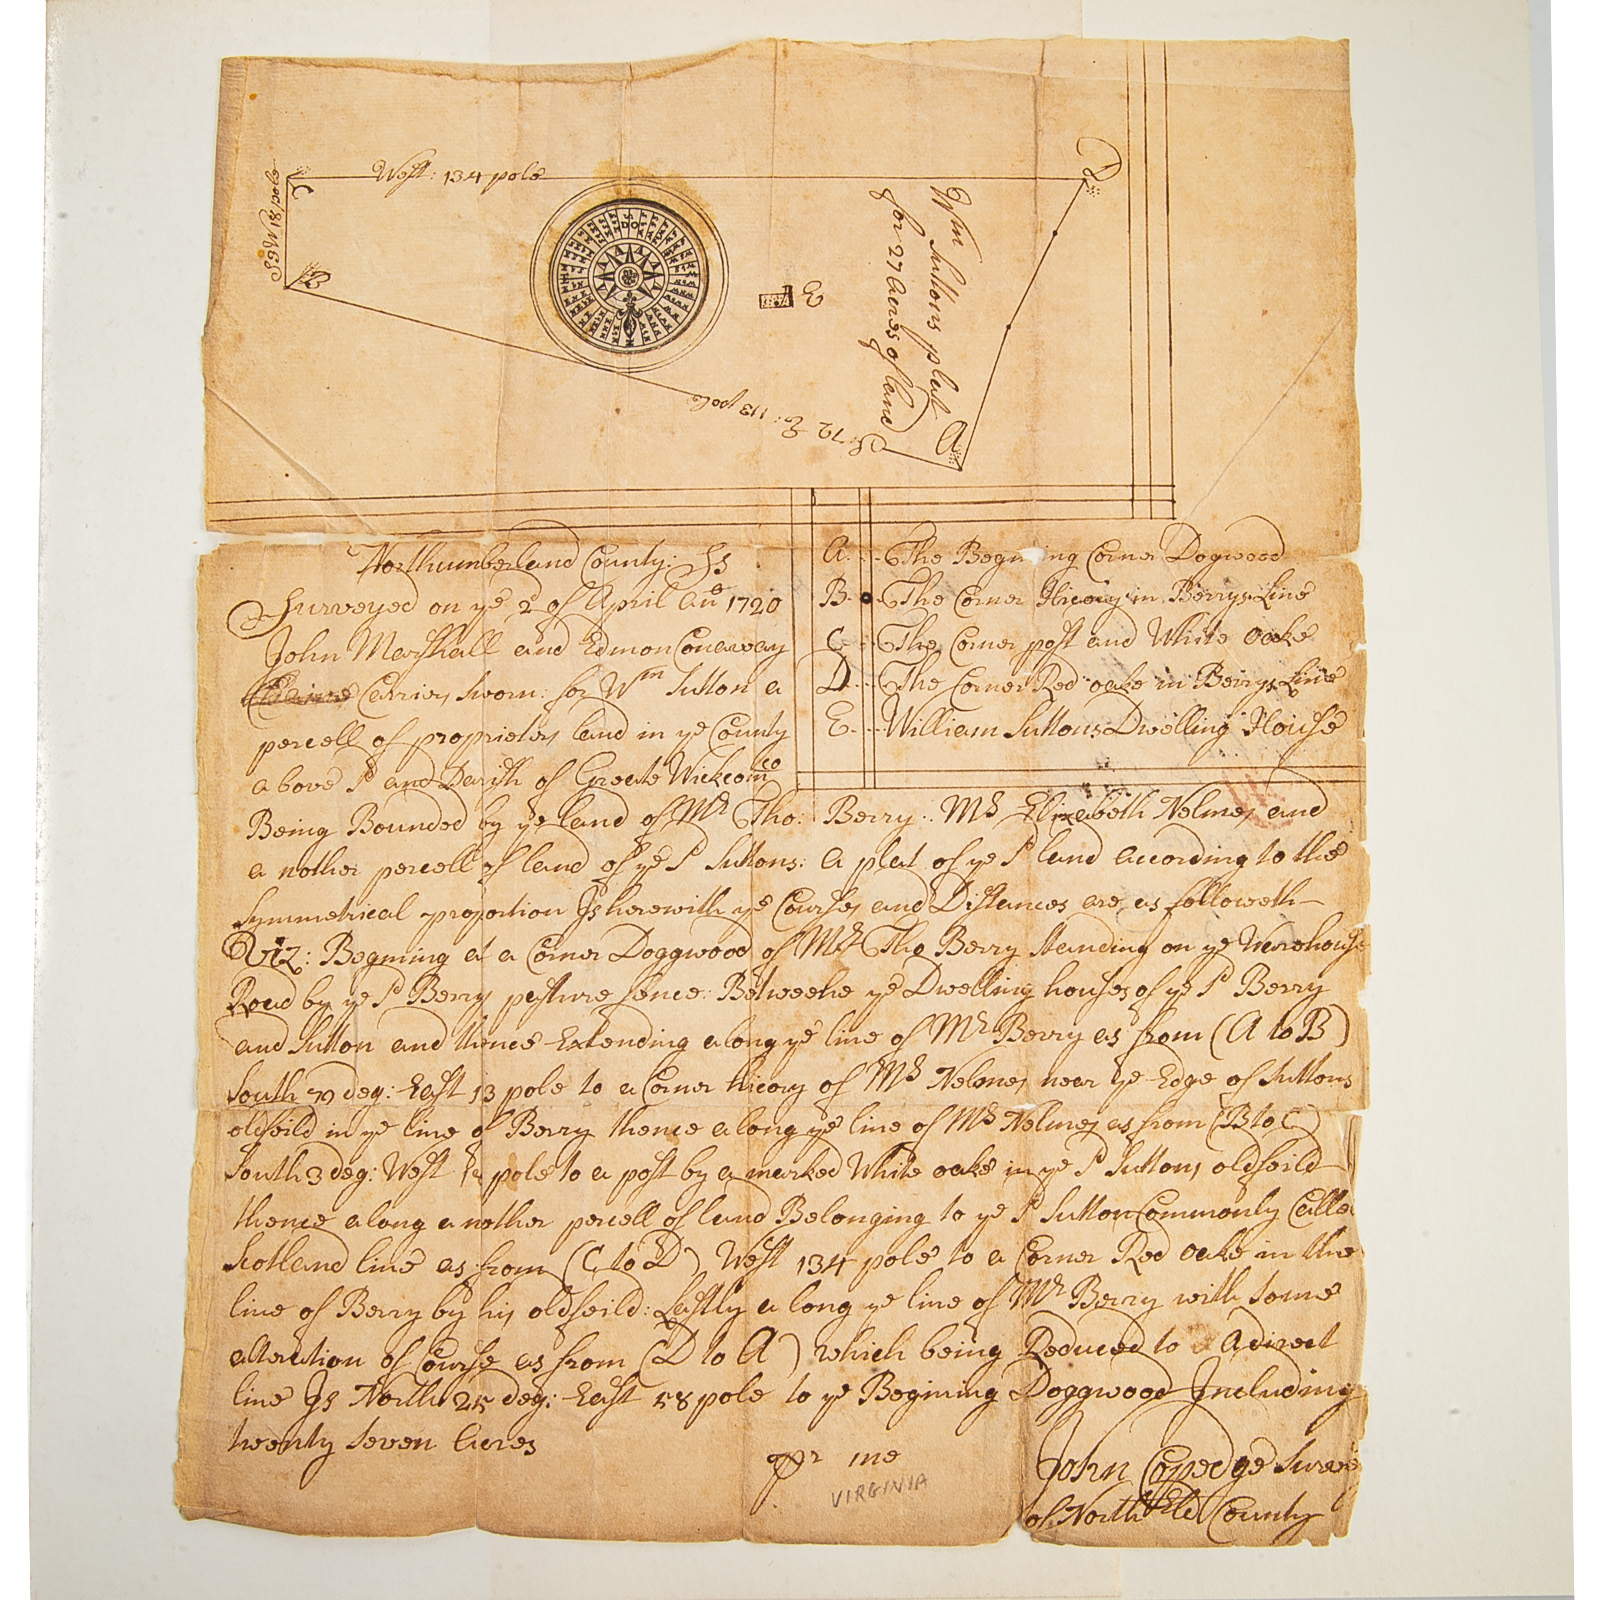 West: 134 pole
S 3 W 18 pole
C
D
B
E
A
Wm Suttons plat
for 27 Acres of land
S: 72 E: 113 pole
Northumberland County: Ss
Surveyed on ye 2d of April Ano 1720
John Marshall and Edmon Conaway
Carriers sworn: for Wm Sutton a
percell of proprietors land in ye County
above sd and Parish of Greate Wickcomco
Being Bounded by ye land of Mr Tho: Berry: Ms Elizabeth Nelmes and
a nother percell of land of ye sd Suttons: A plat of ye sd land according to the
Symmetrical proportion Is herewith ye Courses and Distances are as followeth
Viz: Begining at a Corner Doggwood of Mr Tho Berry standing on ye Warehouse
Road by ye sd Berry pasture fence: Betweene ye Dwelling houses of ye sd Berry
and Sutton and thence Extending along ye line of Mr Berry as from (A to B)
South 72 deg: East 113 pole to a Corner hicory of Ms Nelmes near ye Edge of Suttons
oldfeild in ye line of Berry thence along ye line of Ms Nelmes as from (B to C)
South 3 deg: West 18 pole to a post by a marked White oake in ye sd Suttons oldfeild
thence along a nother percell of land Belonging to ye sd Sutton Commonly Called
Scotland line as from (C to D) West 134 pole to a Corner Red oake in the
line of Berry by his oldfeild: Lastly along ye line of Mr Berry with some
alteration of Course as from (D to A) which being Reduced to A direct
line Is North 25 deg: East 58 pole to ye Begining Doggwood Including
twenty seven Acres
A The Begining Corner Dogwood
B The Corner Hicory in Berrys Line
C The Corner post and White oake
D The Corner Red oake in Berrys Line
E William Suttons Dwelling House
pr me
John Coppedge
of North:Eld County
VIRGINIA